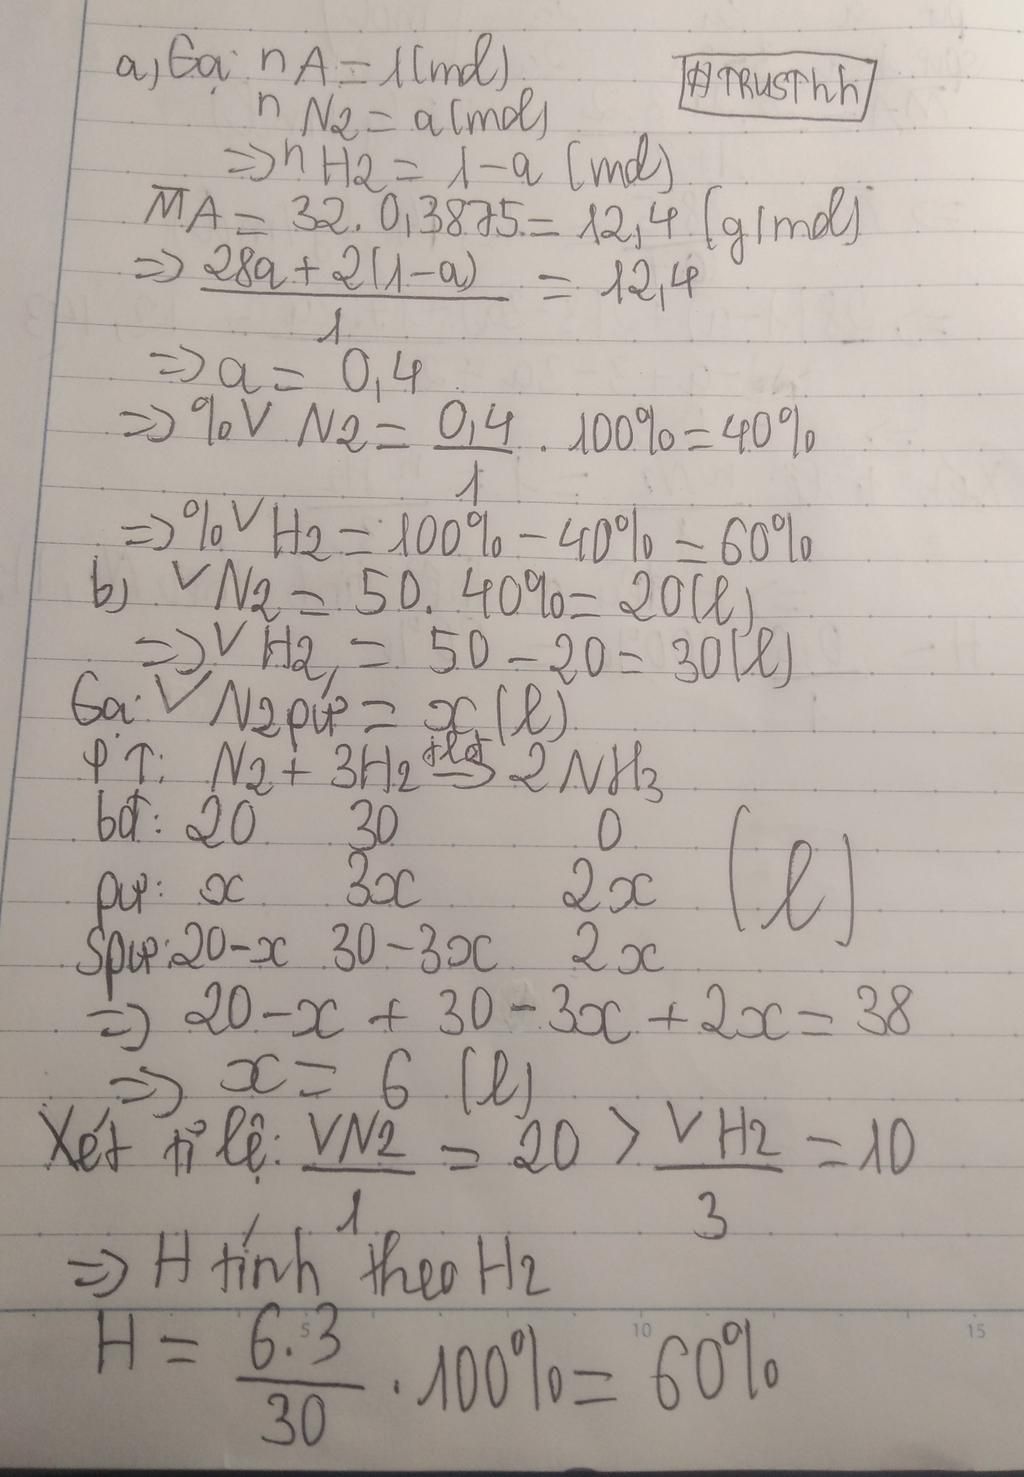 a, Gọi nA = 1(mol)
#TRUSThh
nN2 = a(mol)
=> nH2 = 1-a (mol)
MA = 32.0,3875 = 12,4 (g/mol)
=> 28a + 2(1-a) / 1 = 12,4
=> a = 0,4
=> %V N2 = 0,4 / 1 . 100% = 40%
=> %V H2 = 100% - 40% = 60%
b, V N2 = 50. 40% = 20(l)
=> V H2 = 50 - 20 = 30(l)
Gọi V N2 pứ = x (l)
PT: N2 + 3H2 -> 2NH3
bđ: 20 30 0
pứ: x 3x 2x (l)
Spứ: 20-x 30-3x 2x
=> 20-x + 30-3x + 2x = 38
=> x = 6 (l)
Xét tỉ lệ: VN2 / 1 = 20 > VH2 / 3 = 10
=> H tính theo H2
H = 6.3 / 30 . 100% = 60%
5 10 15